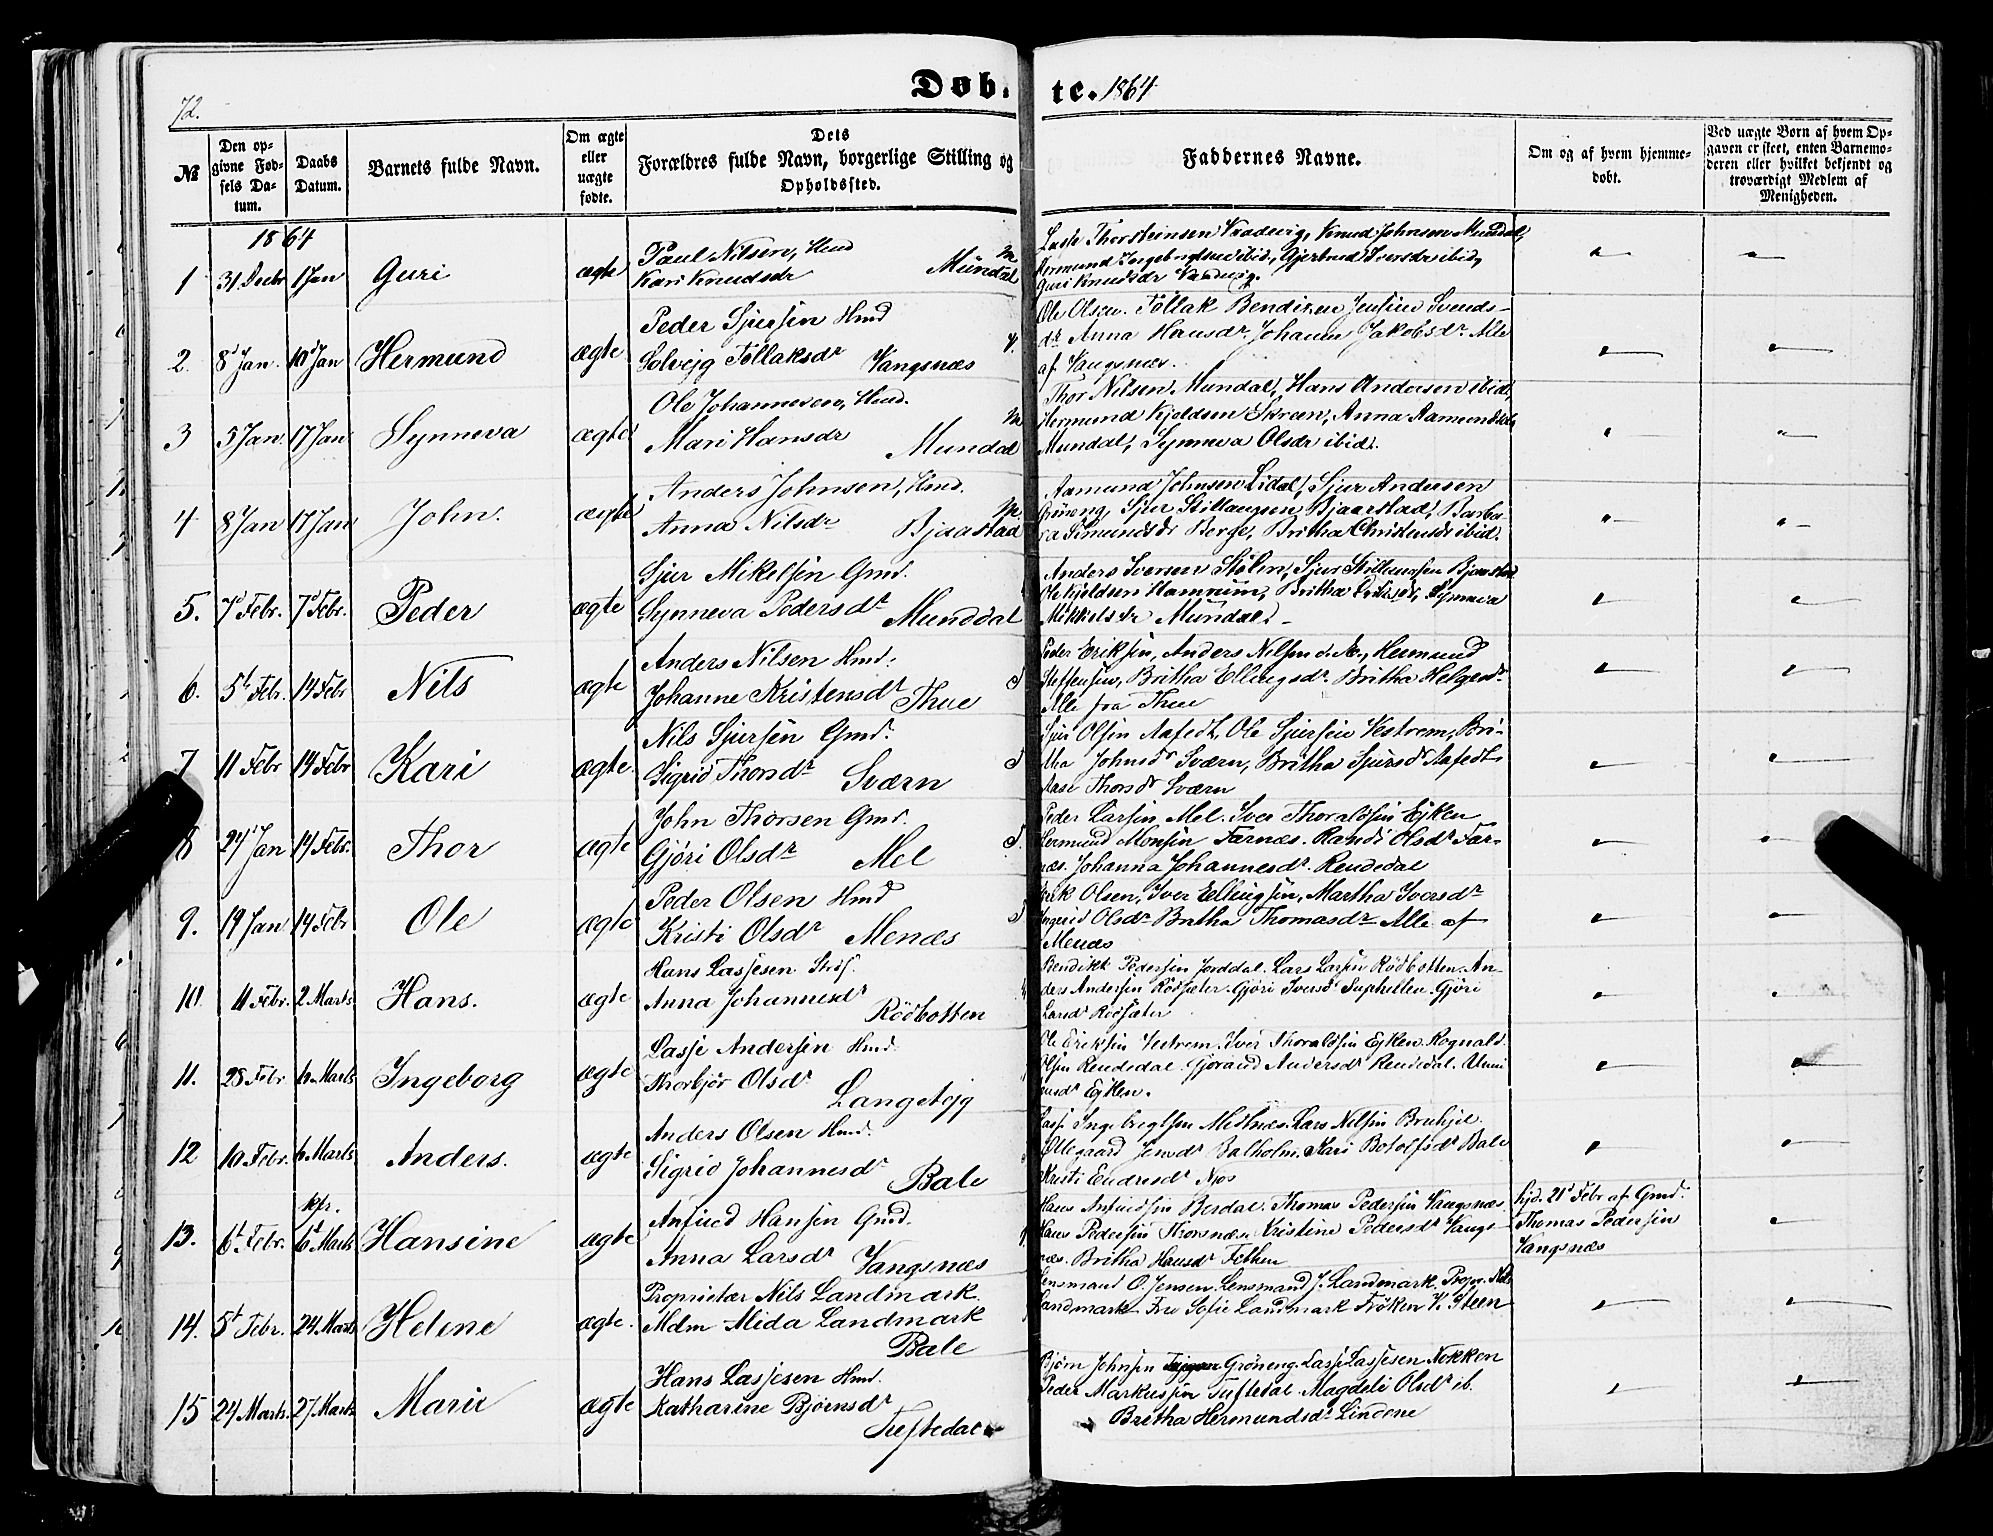 72.
Døb. te. 1864
№
Den op-
givne Fød-
sels Da-
tum.
Daabs
Datum.
Barnets fulde Navn.
Om ægte
eller
uægte
fødte.
Dets
Forældres fulde Navn, borgerlige Stilling og
Opholdssted.
Faddernes Navne.
Om og af hvem hjemme-
døbt.
Ved uægte Børn af hvem Op-
gaven er skeet, enten Barnemo-
deren eller hvilket bekjendt og
troværdigt Medlem af
Menigheden.
1864
1 31 Decbr 1 Jan Guri ægte
Paul Nilsen, Hmd
Kari Knudsdr Mundal
Lasse Thorsteinsen Knud Johnsen Mundal,
Hermund ibid, Gjertrud Iversdr ibid,
Guri Knudsdr
2. 8d Jan. 10d Jan Hermund ægte
Peder Sjursen Hmd
Solvejg Follaksdr Vangsnæs
Ole Olsen. Follak Bendixen Svends-
dr. Anna Hansdr. Johanna Jakobsdr. Alle
af Vangsnæs.
3 5 Jan 17 Jan Synneva ægte
Ole Johannesen, Hmd.
Mari Hansdr Mundal
Thor Nilsen Mundal, Hans Andersen ibid,
Hermund Kjeldsen Anna
Mundal, Synneva Olsdr ibid.
4 8d Jan 17 Jan John. ægte
Anders Johnsen, Hmd.
Anna Nilsdr Bjaastad
Aamund Johnsen Lidal, Sjur Andersen
Grøneng, Sjur Bjaastad, Barba-
ra Simundsdr Berge, Britha Christensdr ibid.
5. 7d Febr. 7d Febr. Peder ægte
Sjur Mikelsen Gmd.
Synneva Pedersdr Munddal
Anders Iversen Stølen, Sjur
Ole Kjeldsen Hamrum, Britha Synneva
Mikkelsdr Mundal.
6. 5t Febr. 14 Febr Nils ægte
Anders Nilsen Hmd.
Johanne Kristensdr Thue
Peder Eriksen, Anders Nilsen d. Æ., Hermund
Steffensen, Britha Ellingsdr. Britha Helgesdr
Alle fra Thue
7 11 Febr 14 Febr Kari ægte.
Nils Sjursen Gmd.
Sigrid Thorsdr Sværn
Sjur Olsen Aafedt, Ole Sjursen Vestrem, Bri-
tha Johnsdr Sværn, Britha Sjursdr Aafedt
Aase Thorsdr Sværn
8 24d Jan 14 Febr. Thor ægte
John Thorsen Gmd.
Gjöri Olsdr Mel
Peder Larsen Mel. Iver Thoraldsen Ejken
Hermund Monsen Farnæs. Randi Olsdr Far-
næs. Johanna Johannesdr. Rendedal
9. 19 Jan 14 Febr Ole ægte
Peder Olsen Hmd
Kristi Olsdr Menæs
Erik Olsen, Iver Ellingsen, Martha Iversdr
Ingerid Olsdr Britha Thomasdr Alle af
Menæs
10 11 Febr. 2 Marts Hans. ægte
Hans Lassesen
Anna Johannesdr Rödbotten
Bendikt Pedersen Jorddal. Lars Larsen Rödbotten. An-
ders Andersen Rödsæter. Gjöri Iversd Suphellen. Gjöri
Larsdr Rödsæter
11. 28 Febr 6 Marts Ingeborg ægte
Lasse Andersen Hmd.
Thorbjør Olsdr Langetejg
Ole Eriksen Vestrem. Iver Thoraldsen Ejken. Rognald
Olsen Rendedal. Gjorand Andersdr Rendedal. Unni
Ejken.
12 10 Febr. 6 Marts Anders. ægte
Anders Olsen Hmd.
Sigrid Johannesdr Bale
Lasse Ingebregtsen Lars Nilsen
Ollegaard Jensdr Balholm. Kari Botolfsdr Bale
Kristi Endresdr Njøs
13. 6t Febr. 6t Marts Hansine ægte
Anfind Hansen Gmd.
Anna Larsdr Vangsnæs
Hans Anfindsen Berdal. Thomas Pedersen Vangsnæs
Hans Pedersen Kristine Pedersdr Vangs-
næs. Britha Hansdr Fetten
hjd. 21d Febr af Gmd.
Thomas Pedersen
Vangsnæs
14. 5t Febr. 24 Marts Helene ægte.
Proprietær Nils Landmark
Mdm Mida Landmark
Bale
Lensmand O. Jensen. Lensmand J. Landmark. Propr. Nils
Landmark Fru Sofie Landmark Frøken K. Steen
15 24 Marts 27 Marts Marie ægte
Hans Lassesen Hmd.
Katharine Bjørnsdr
Tuftedal
Bjørn Johnsen Grøneng. Lasse Lassesen Nokken
Peder Markussen Tuftedal. Magdeli Olsdr ib.
Britha Hermundsdr Lindene